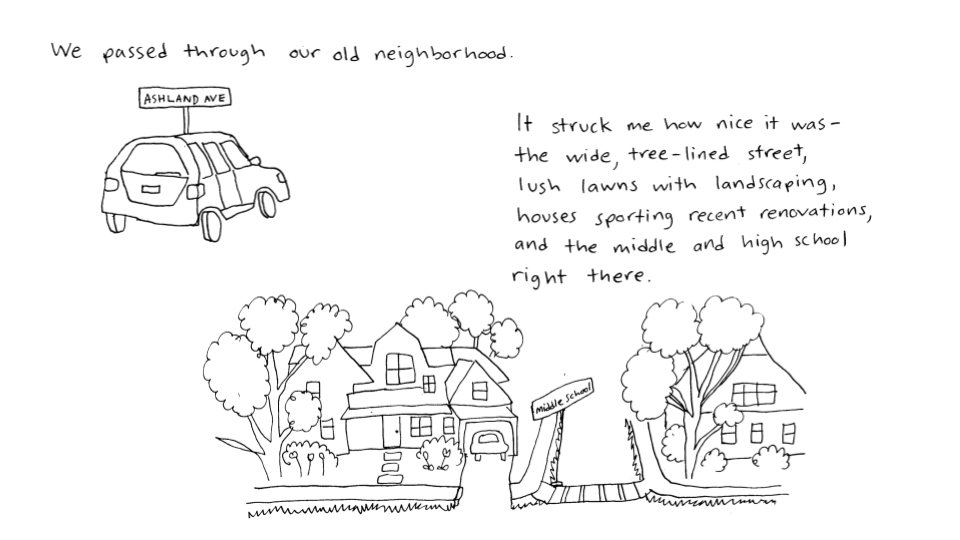 We passed through our old neighborhood.
ASHLAND AVE
It struck me how nice it was-
the wide, tree-lined street,
lush lawns with landscaping,
houses sporting recent renovations,
and the middle and high school
right there.
Middle School